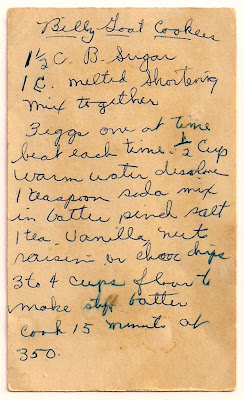 Billy Goat Cookies
1 1/2 C. B. Sugar
1 C. melted Shortening
mix together
3 eggs one at time
beat each time. 1/2 Cup
warm water desolve
1 teaspoon soda mix
in batter pinch salt
1 tea. Vanilla, nuts
raisin or choc chips
3 to 4 cups flour to
make stif batter
Cook 15 minute at
350.